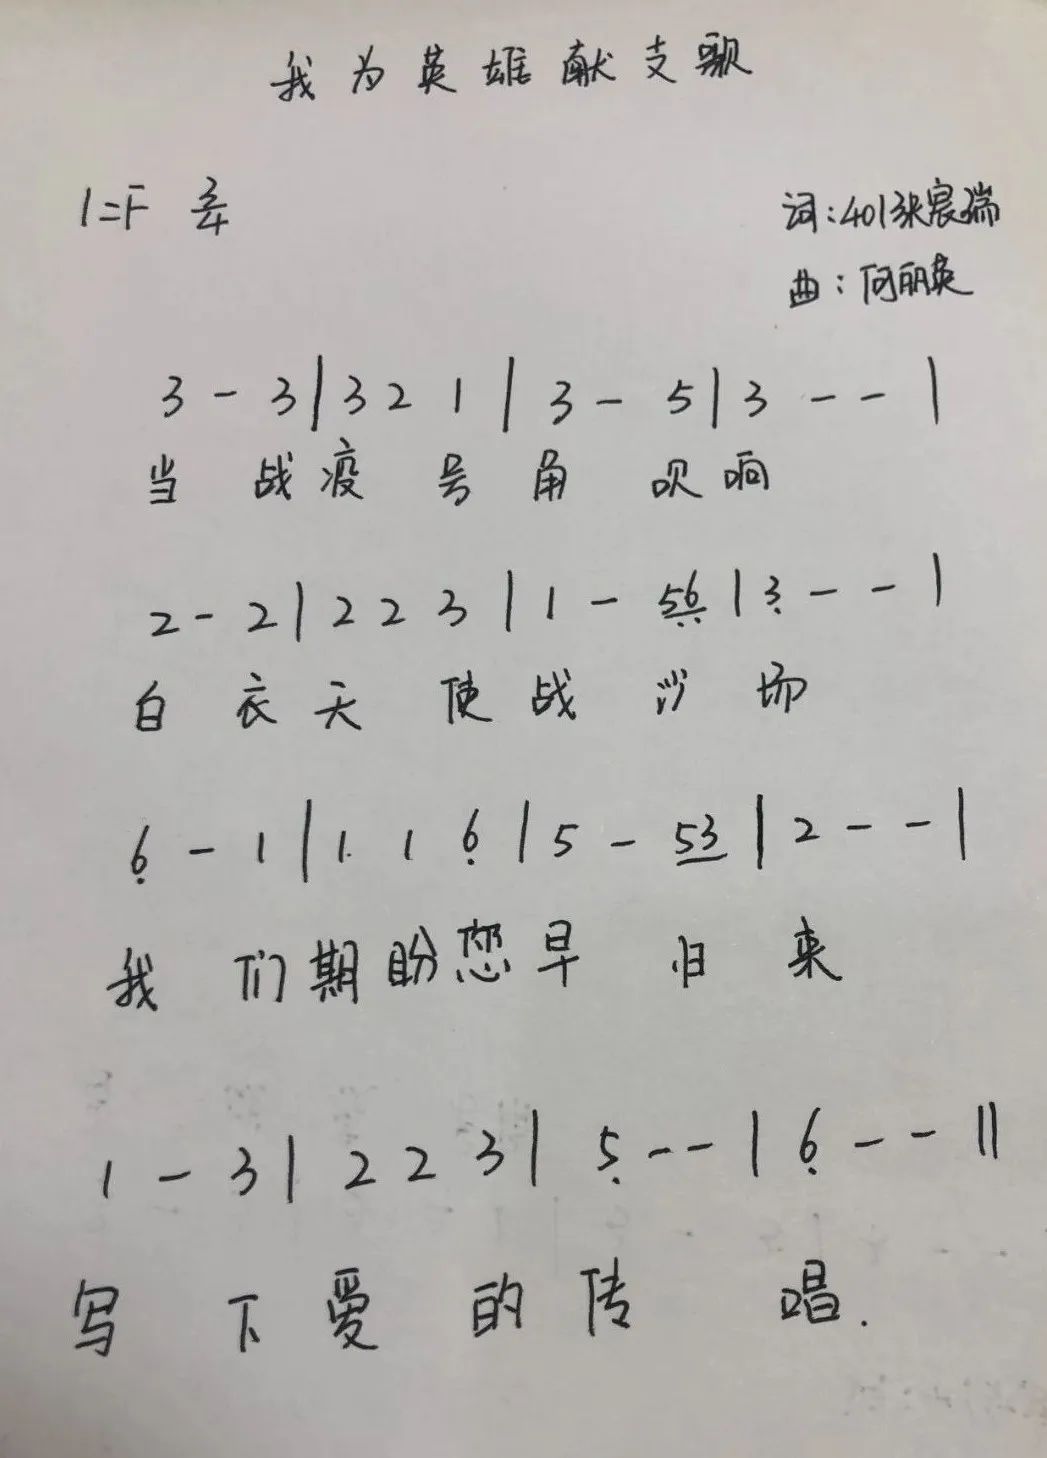 我为英雄献支歌
1=F 3/4
词:401张宸瑞
曲:何丽英
3 - 3 | 3 2 1 | 3 - 5 | 3 - - |
当 战疫 号 角 吹响
2 - 2 | 2 2 3 | 1 - 5̣6̣ | 3̣ - - |
白 衣 天 使 战 沙 场
6̣ - 1 | 1 1 6̣ | 5 - 53 | 2 - - |
我 们期盼您早 归 来
1 - 3 | 2 2 3 | 5̣ - - | 6̣ - - ||
写 下 爱 的 传 唱.